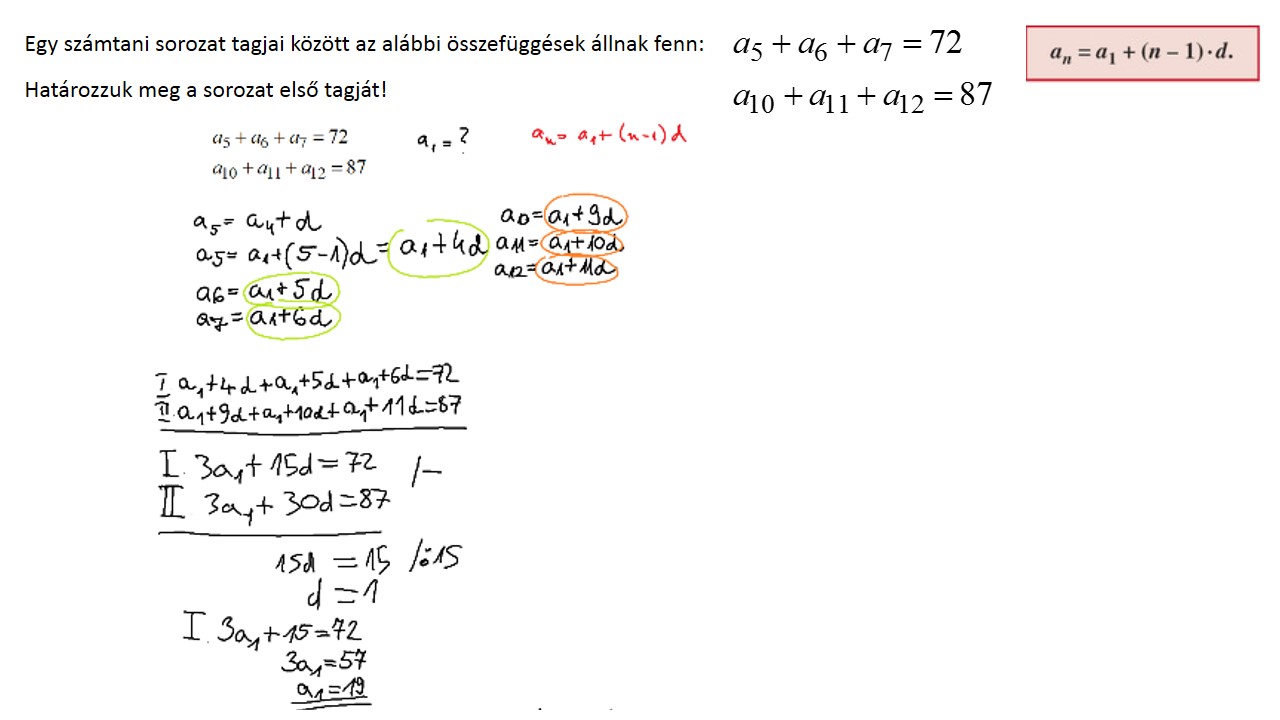 Egy számtani sorozat tagjai között az alábbi összefüggések állnak fenn: a₅ + a₆ + a₇ = 72
Határozzuk meg a sorozat első tagját! a₁₀ + a₁₁ + a₁₂ = 87
aₙ = a₁ + (n – 1)·d.
a₅ + a₆ + a₇ = 72
a₁₀ + a₁₁ + a₁₂ = 87
a₁ = ?
aₙ = a₁ + (n-1)d
a5 = a₄ + d
a5 = a₁ + (5-1)d = a₁ + 4d
a6 = a₁ + 5d
a7 = a₁ + 6d
a10 = a₁ + 9d
a11 = a₁ + 10d
a12 = a₁ + 11d
I a₁ + 4d + a₁ + 5d + a₁ + 6d = 72
II. a₁ + 9d + a₁ + 10d + a₁ + 11d = 87
I. 3a₁ + 15d = 72 /-
II 3a₁ + 30d = 87
15d = 15 /:15
d = 1
I. 3a₁ + 15 = 72
3a₁ = 57
a₁ = 19